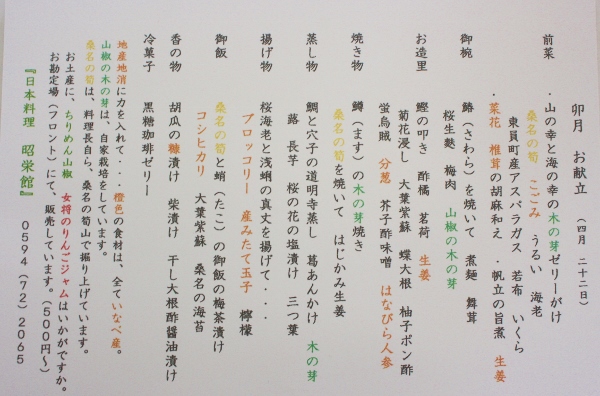 卯月　お献立　（四月　二十二日）
前菜　・山の幸と海の幸の木の芽ゼリーがけ
桑名の筍　こごみ　うるい　海老
東員町産アスパラガス　若布　いくら
・菜花　椎茸の胡麻和え　・帆立の旨煮　生姜
御椀　鰆（さわら）を焼いて　煮麺　舞茸
桜生麩　梅肉　山椒の木の芽
お造里　鰹の叩き　酢橘　茗荷　生姜
菊花浸し　大葉紫蘇　蝶大根　柚子ポン酢
蛍烏賊　分葱　芥子酢味噌　はなびら人参
焼き物　鱒（ます）の木の芽焼き
桑名の筍を焼いて　はじかみ生姜
蒸し物　鯛と穴子の道明寺蒸し　葛あんかけ　木の芽
蕗　長芋　桜の花の塩漬け　三つ葉
揚げ物　桜海老と浅蜊の真丈を揚げて・・・
ブロッコリー　産みたて玉子　檸檬
御飯　桑名の筍と蛸（たこ）の御飯の梅茶漬け
コシヒカリ　大葉紫蘇　桑名の海苔
香の物　胡瓜の糠漬け　柴漬け　干し大根酢醤油漬け
冷菓子　黒糖珈琲ゼリー
地産地消に力を入れて・・・橙色の食材は、全ていなべ産。
山椒の木の芽は、自家栽培をしています。
桑名の筍は、料理長自ら、桑名の筍山で掘り上げています。
お土産に、ちりめん山椒　女将のりんごジャムはいかがですか。
お勘定場（フロント）にて、販売しています。（５００円～）
『日本料理　昭栄館』　０５９４（７２）２０６５